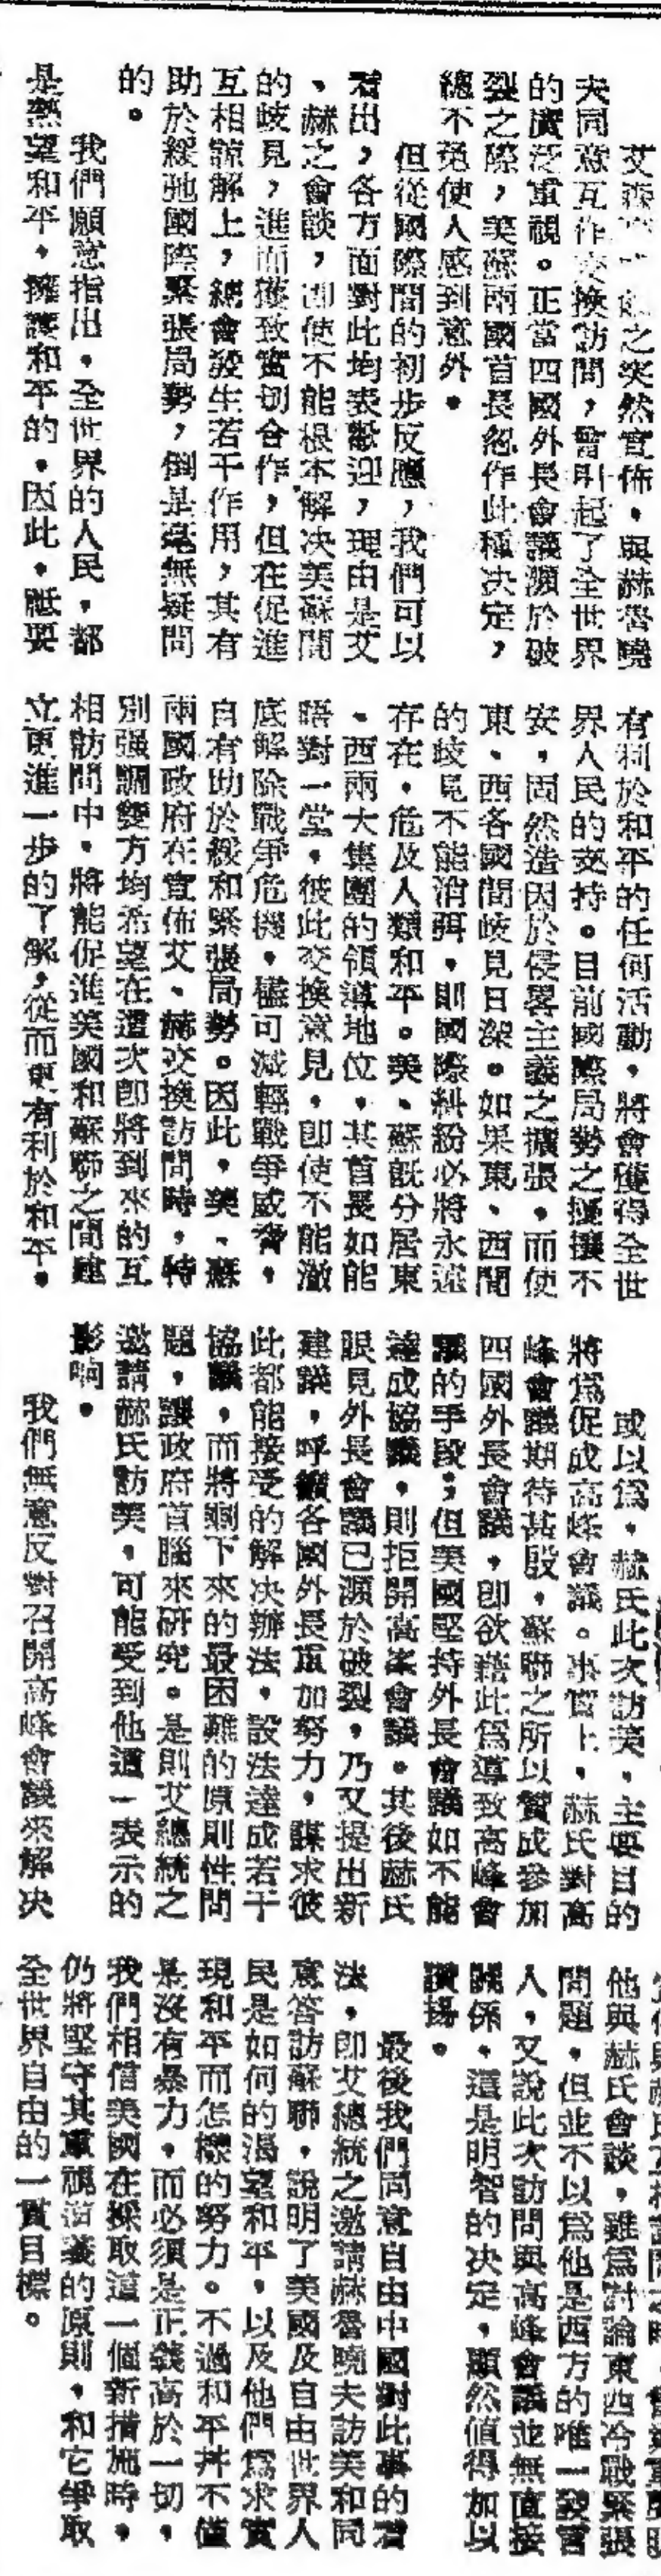 艾森豪之突然宣佈，與赫魯曉
夫同意互作交換訪問，曾引起了全世界
的廣泛重視。正當四國外長會議瀕於破
裂之際，美蘇兩國首長忽作此種决定，
總不免使人感到意外。
但從國際間的初步反應，我們可以
看出，各方面對此均表歡迎，理由是艾
、赫之會談，卽使不能根本解决美蘇間
的歧見，進而獲致實切合作，但在促進
互相諒解上，總會發生若干作用，其有
助於緩弛國際緊張局勢，倒是毫無疑問
的。
我們願意指出，全世界的人民，都
是熱望和平，擁護和平的，因此，祗要
有利於和平的任何活動，將會獲得全世
界人民的支持。目前國際局勢之擾攘不
安，固然造因於侵畧主義之擴張，而使
東、西各國間歧見日深。如果東、西間
的歧見不能消弭，則國際糾紛必將永遠
存在，危及人類和平。美、蘇旣分居東
、西兩大集團的領導地位，其首長如能
晤對一堂，彼此交換意見，卽使不能澈
底解除戰爭危機，儘可減輕戰爭威脅，
自有助於緩和緊張局勢。因此，美、蘇
兩國政府在宣佈艾、赫交換訪問時，特
別强調雙方均希望在這次卽將到來的互
相訪問中，將能促進美國和蘇聯之間建
立更進一步的了解，從而更有利於和平。
或以爲，赫氏此次訪美，主要目的
將爲促成高峰會議。事實上，赫氏對高
峰會議期待甚殷，蘇聯之所以贊成參加
四國外長會議，卽欲藉此爲導致高峰會
議的手段；但美國堅持外長會議如不能
達成協議，則拒開高峯會議。其後赫氏
眼見外長會議已瀕於破裂，乃又提出新
建議，呼籲各國外長重加努力，謀求彼
此都能接受的解决辦法，設法達成若干
協議，而將剩下來的最困難的原則性問
題，讓政府首腦來研究。是則艾總統之
邀請赫氏訪美，可能受到他這一表示的
影响。
我們無意反對召開高峰會議來解决
他與赫氏會談，雖爲討論東西冷戰緊張
問題，但並不以爲他是西方的唯一發言
人，又說此次訪問與高峰會議並無直接
關係，這是明智的决定，顯然值得加以
讚揚。
最後我們同意自由中國對此事的看
法，卽艾總統之邀請赫魯曉夫訪美和同
意答訪蘇聯，說明了美國及自由世界人
民是如何的渴望和平，以及他們爲求實
現和平而怎樣的努力。不過和平幷不值
是沒有暴力，而必須是正義高於一切，
我們相信美國在採取這一個新措施時，
仍將堅守其重視道義的原則，和它爭取
全世界自由的一貫目標。